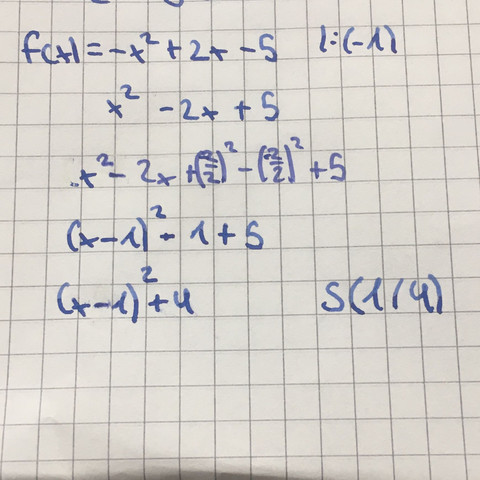 f(x) = -x² + 2x - 5 |:(-1)
x² - 2x + 5
x² - 2x + (2/2)² - (2/2)² + 5
(x-1)² - 1 + 5
(x-1)² + 4 S(1/4)